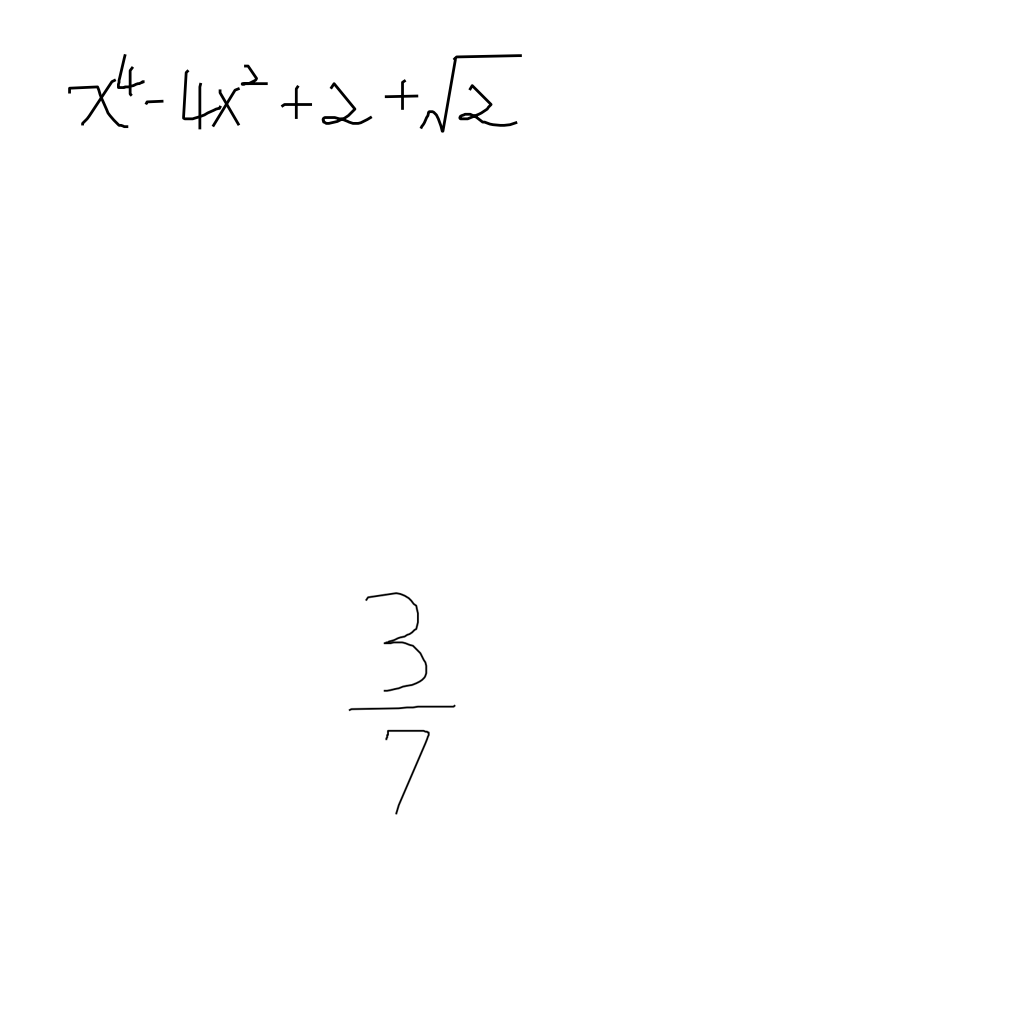 x⁴ - 4x² + 2 + √2
3/7